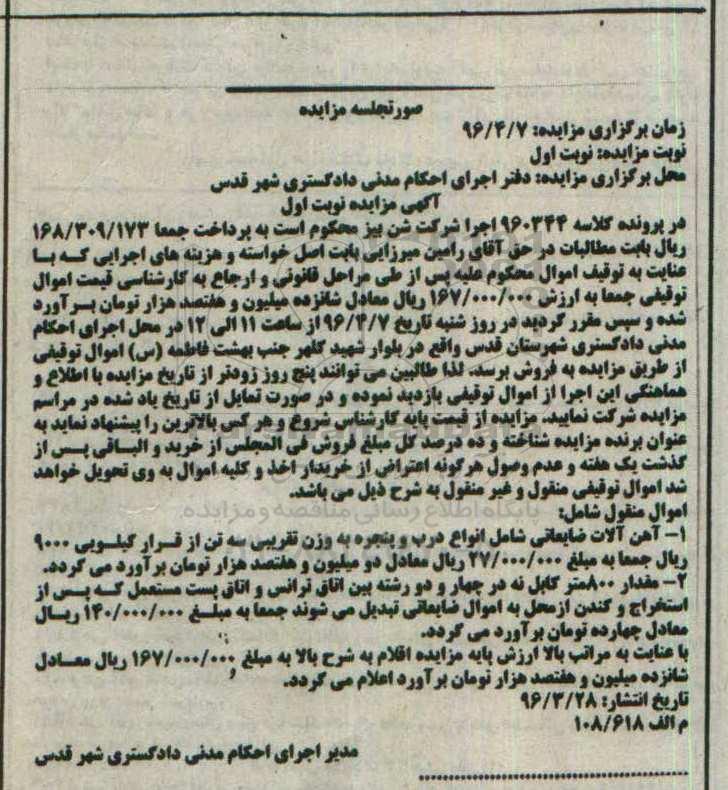 صورتجلسه مزایده
زمان برگزاری مزایده: ۹۶/۴/۷
نوبت مزایده: نوبت اول
محل برگزاری مزایده: دفتر اجرای احکام مدنی دادگستری شهر قدس
آگهی مزایده نوبت اول
در پرونده کلاسه ۹۶۰۳۴۴ اجرا شرکت شن بیز محکوم است به پرداخت جمعا ۱۶۸/۳۰۹/۱۷۳
ریال بابت مطالبات در حق آقای رامین میرزایی بابت اصل خواسته و هزینه های اجرایی که با
عنایت به توقیف اموال محکوم علیه پس از طی مراحل قانونی و ارجاع به کارشناسی قیمت اموال
توقیفی جمعا به ارزش ۱۶۷/۰۰۰/۰۰۰ ریال معادل شانزده میلیون و هفتصد هزار تومان برآورد
شده و سپس مقرر گردید در روز شنبه تاریخ ۹۶/۴/۷ از ساعت ۱۱ الی ۱۲ در محل اجرای احکام
مدنی دادگستری شهرستان قدس واقع در بلوار شهید کلهر جنب بهشت فاطمه (س) اموال توقیفی
از طریق مزایده به فروش برسد. لذا طالبین می توانند پنج روز زودتر از تاریخ مزایده با اطلاع و
هماهنگی این اجرا از اموال توقیفی بازدید نموده و در صورت تمایل از تاریخ یاد شده در مراسم
مزایده شرکت نمایید. مزایده از قیمت پایه کارشناس شروع و هر کس بالاترین را پیشنهاد نماید به
عنوان برنده مزایده شناخته و ده درصد کل مبلغ فروش فی المجلس از خرید و الباقی پس از
گذشت یک هفته و عدم وصول هرگونه اعتراض از خریدار اخذ و کلیه اموال به وی تحویل خواهد
شد اموال توقیفی منقول و غیر منقول به شرح ذیل می باشد.
پایگاه اطلاع رسانی مناقصه و مزایده
اموال منقول شامل:
۱- آهن آلات ضایعاتی شامل انواع درب و پنجره به وزن تقریبی سه تن از قرار کیلویی ۹۰۰۰
ریال جمعا به مبلغ ۲۷/۰۰۰/۰۰۰ ریال معادل دو میلیون و هفتصد هزار تومان برآورد می گردد.
۲- مقدار ۸۰۰متر کابل نه در چهار و دو رشته بین اتاق ترانس و اتاق پست مستعمل که پس از
استخراج و کندن ازمحل به اموال ضایعاتی تبدیل می شوند جمعا به مبلغ ۱۴۰/۰۰۰/۰۰۰ ریال
معادل چهارده تومان برآورد می گردد.
با عنایت به مراتب بالا ارزش پایه مزایده اقلام به شرح بالا به مبلغ ۱۶۷/۰۰۰/۰۰۰ ریال معادل
شانزده میلیون و هفتصد هزار تومان برآورد اعلام می گردد.
تاریخ انتشار: ۹۶/۳/۲۸
م الف ۱۰۸/۶۱۸
مدیر اجرای احکام مدنی دادگستری شهر قدس